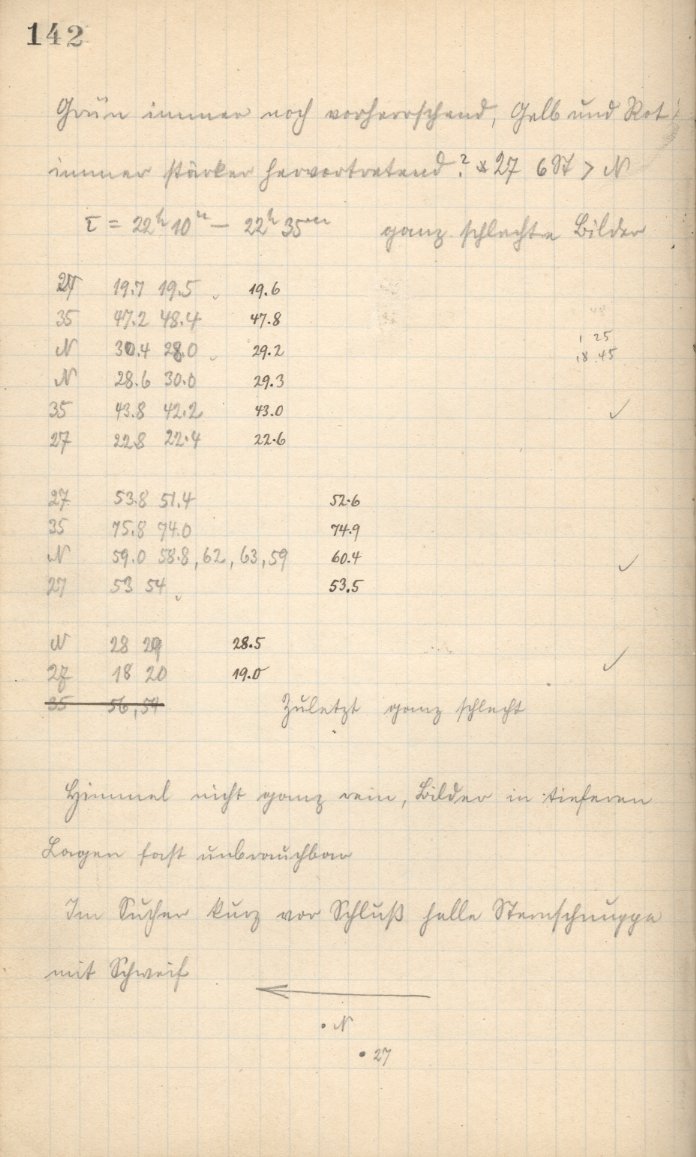 142
Grün immer noch vorherrschend, Gelb und Rot
immer stärker hervortretend? * 27 6St > N
τ = 22h 10m — 22h 35m ganz schlechte Bilder
27 19.7 19.5 19.6
35 47.2 48.4 47.8
N 30.4 28.0 29.2
1 25
18 45
N 28.6 30.0 29.3
35 43.8 42.2 43.0 ✓
27 22.8 22.4 22.6
27 53.8 51.4 52.6
35 75.8 74.0 74.9
N 59.0 58.8, 62, 63, 59 60.4 ✓
27 53 54 53.5
N 28 29 28.5
27 18 20 19.0 ✓
35 56, 54 Zuletzt ganz schlecht
Himmel nicht ganz rein, Bilder in tieferen
Lagen fast unbrauchbar
Im Sucher kurz vor Schluß helle Sternschnuppe
mit Schweif
N
27